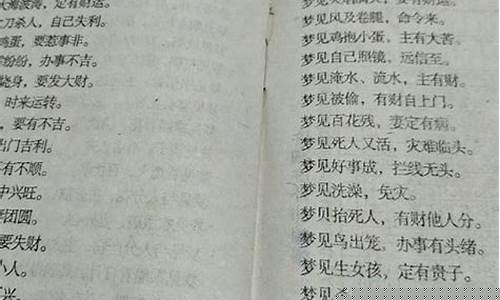 定有财运。
刀杀人，自己失利。
鸡蛋，要惹事非。
缤纷，办事不吉。
绕身，要发大财。
时来运转。
，要有不吉。
出门吉利。
有不顺。
中兴旺。
团圆。
要失财。
小人。
兴。
梦见风及卷腿，命令来。
梦见鸡抱小蛋，主有大苦。
梦见自己照镜，远信至。
梦见淹水、流水，主有财。
梦见被偷，有财自上门。
梦见百花残，妻定有病。
梦见死人又活，灾难临头。
梦见好事成，拦线无头。
梦见洗澡，免灾。
梦见抬死人，有财他人分。
梦见鸟出笼，办事有头绪。
梦见生女孩，定有贵子。
梦见